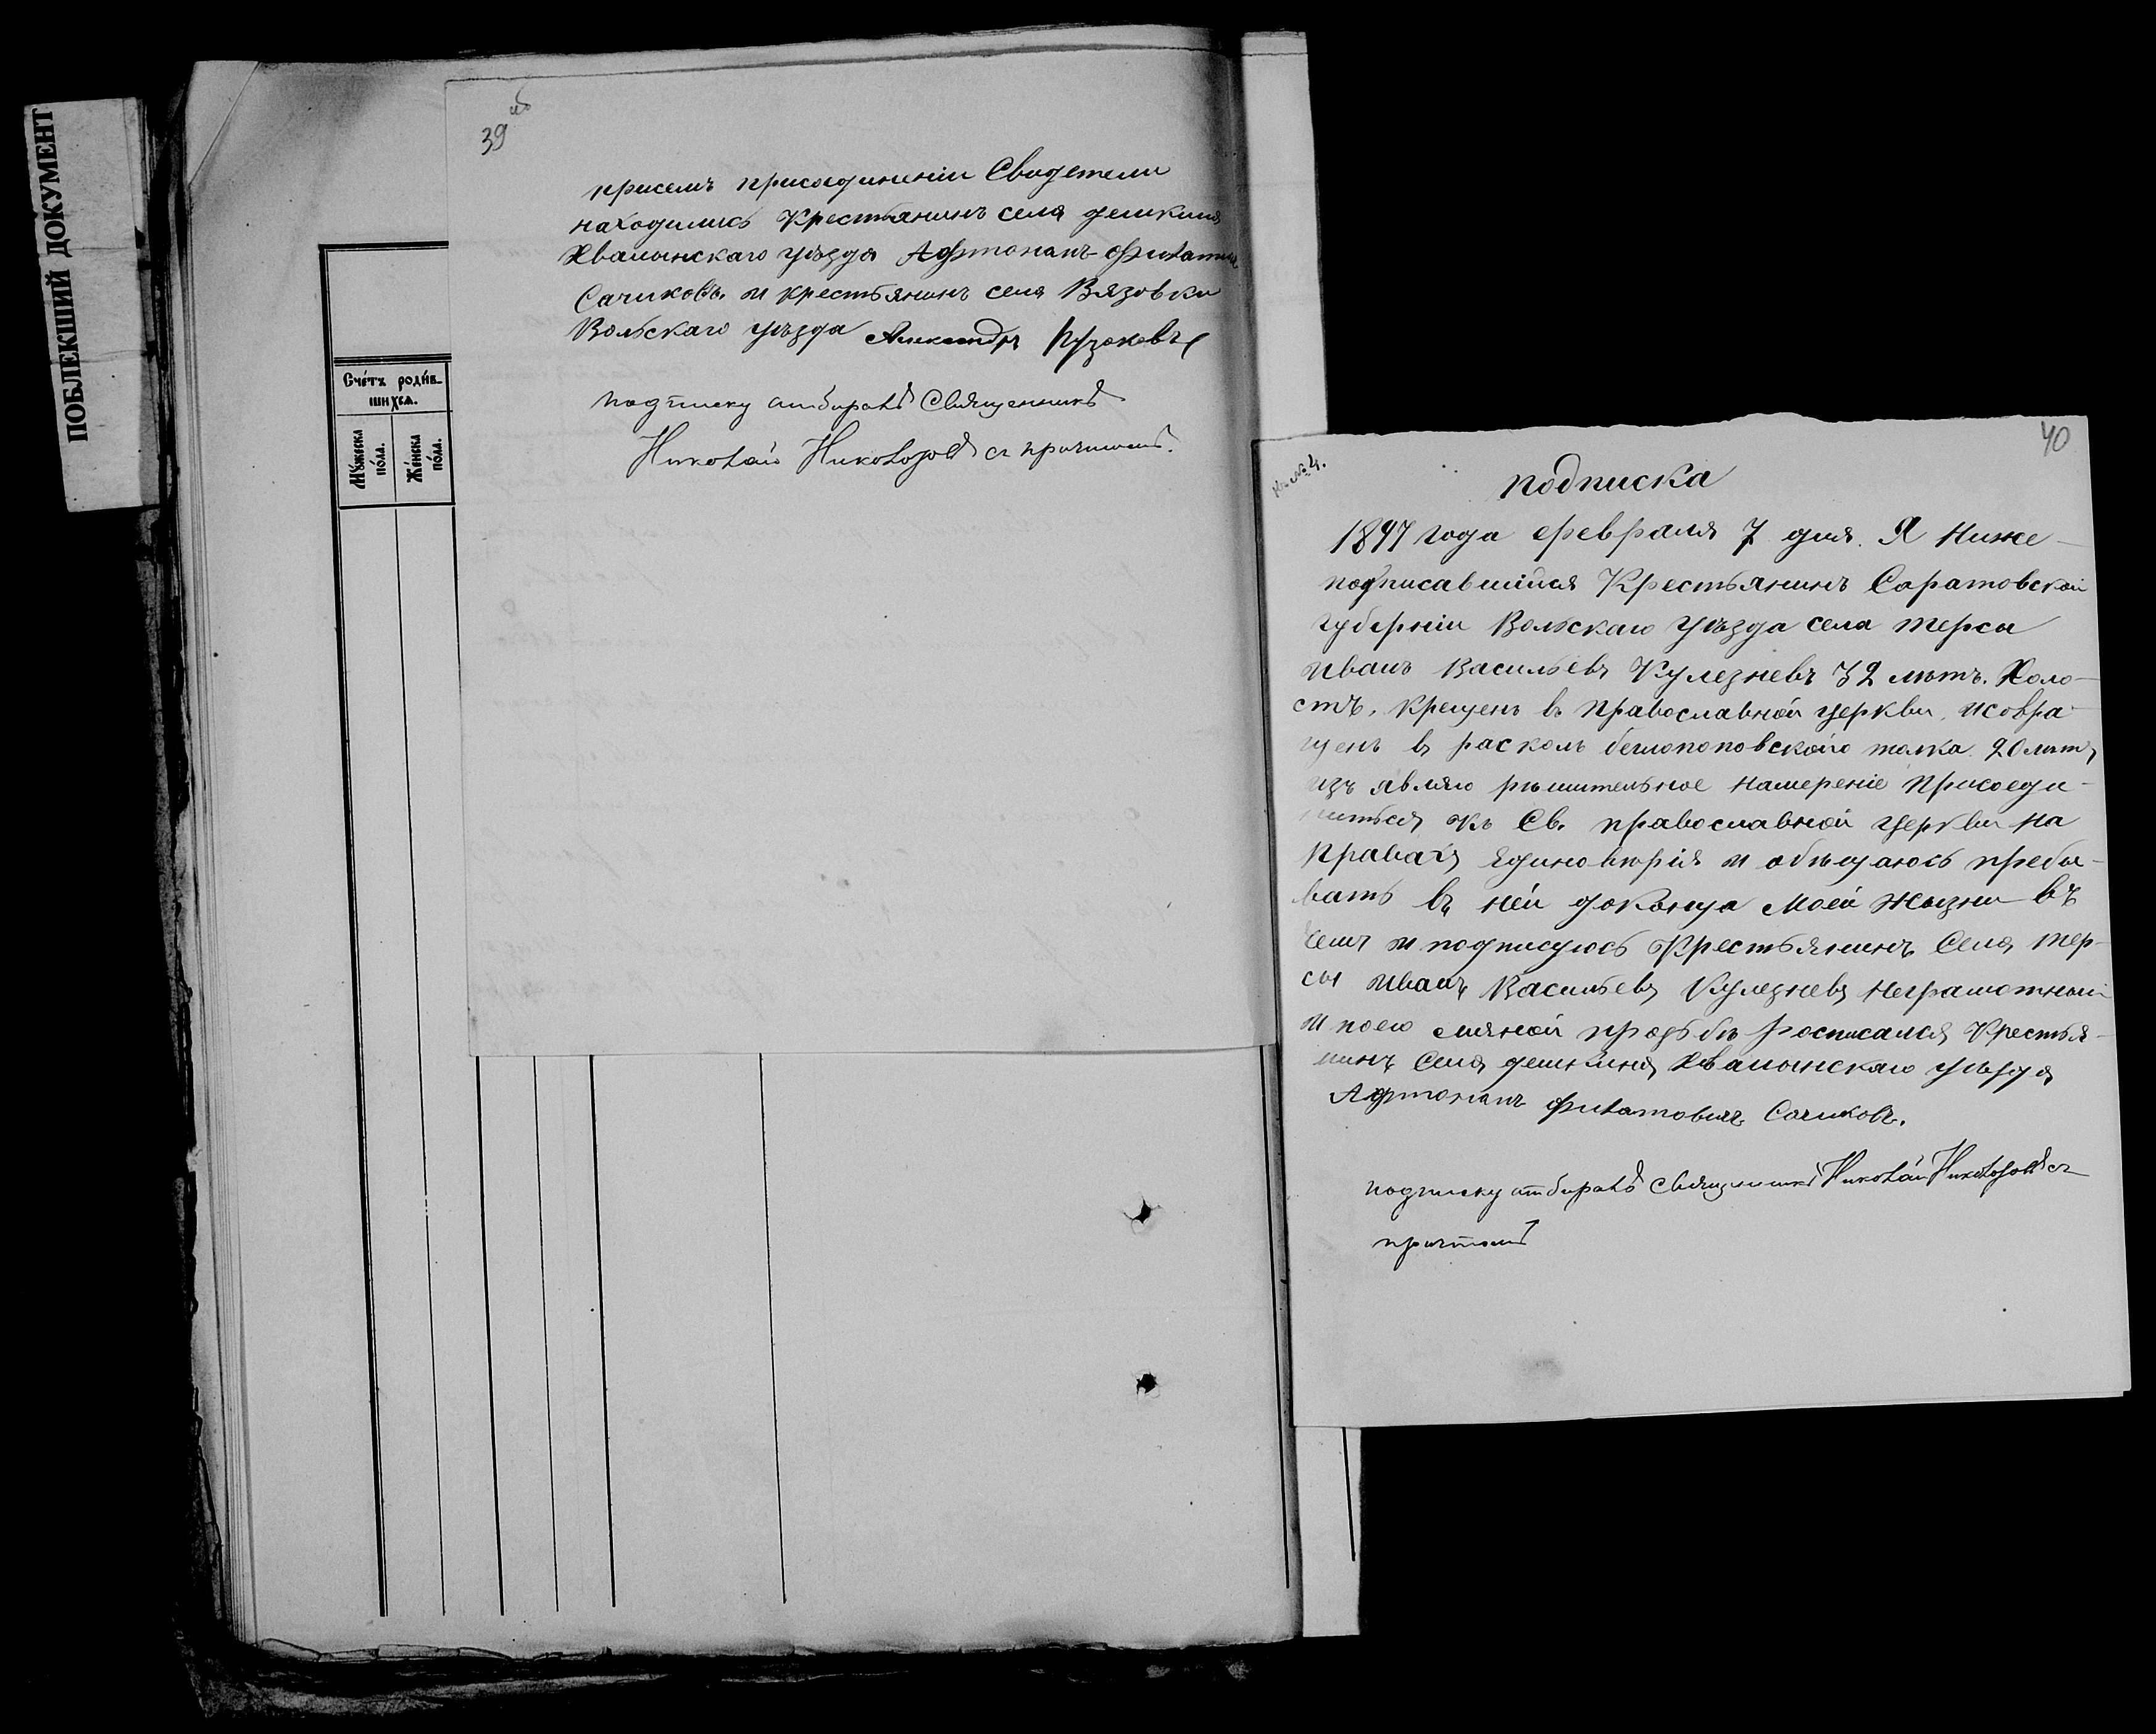 ПОБЛЕКШИЙ ДОКУМЕНТ
39 об
присемъ присоединеніи Свидетели
находились Крестьянинъ села
Хвалынскаго уѣзда Афтонамъ Филатов
Сачиковъ. и крестьянинъ села Вязовки
Вольскаго уѣзда Александръ Пузаковъ
подписку отбиралъ Священникъ
Николай с причтомъ.
Счётъ роди́в-
шихся.
Му́жеска
по́ла.
Же́нска
по́ла.
40
№ 4.
подписка
1897 года февраля 7 дня. Я Ниже-
подписавшійся Крестьянинъ Саратовской
губерніи Вольскаго уѣзда села терсы
Иванъ Васильевъ Кулезневъ 32 лѣтъ. Холо-
стъ. Крещенъ въ православной церкви, и совра-
щенъ въ расколъ беглопоповского толка 20 лѣтъ,
изъ являю рѣшительное намереніе Присоеди-
ниться къ Св. православной церкви на
Правахъ Единовѣрія и обѣщаюсь пребы-
вать въ ней доконца Моей Жизни въ
чемъ и подписуюсь Крестьянинъ Села тер-
сы Иванъ Васильевъ Кулезневъ Неграмотный
и поего личной прозьбѣ росписался Крестья-
нинъ Села Хвалынскаго уѣзда
Афтонамъ Филатовичъ Сачиковъ.
подписку отбиралъ священникъ Николай съ
причтомъ